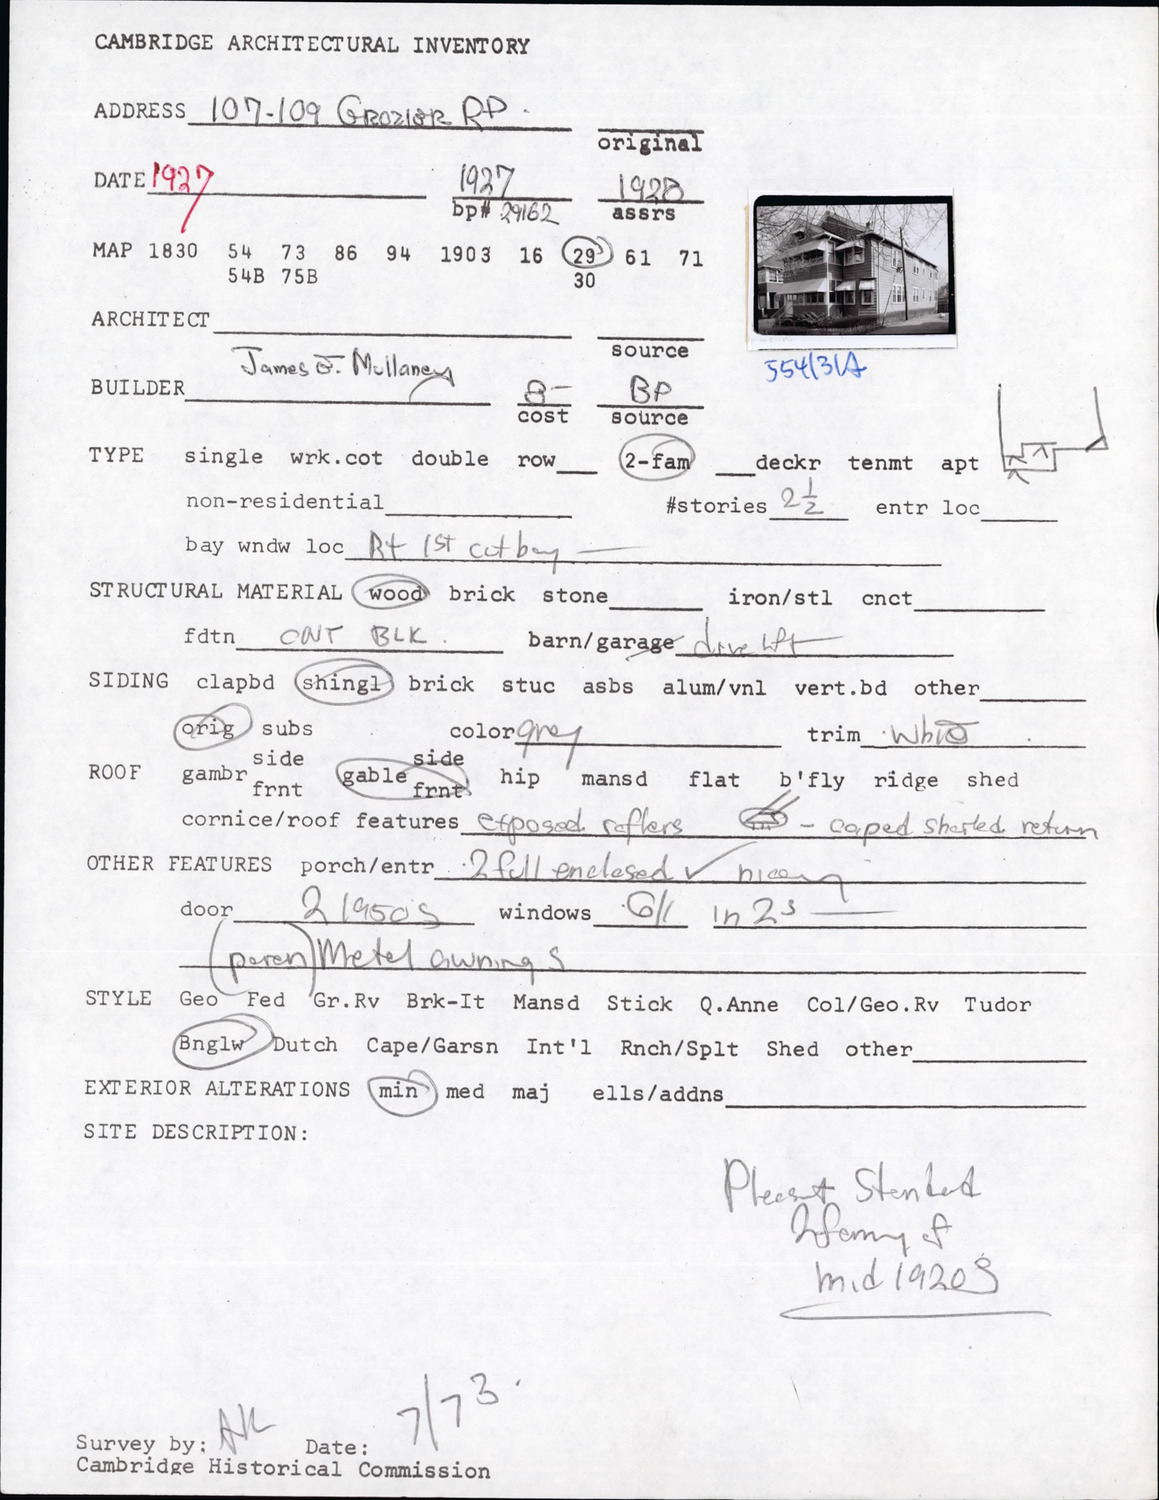 CAMBRIDGE ARCHITECTURAL INVENTORY
ADDRESS 107-109 GROZIER RD.
original
DATE 1927 1927 1928
bp# 29162 assrs
MAP 1830 54 73 86 94 1903 16 29 61 71
54B 75B 30
ARCHITECT
source
554/31A
BUILDER James J. Mullaney 8- BP
cost source
TYPE single wrk.cot double row 2-fam deckr tenmt apt
non-residential #stories 2 1/2 entr loc
bay wndw loc Rt 1st cut bay
STRUCTURAL MATERIAL wood brick stone iron/stl cnct
fdtn CNT BLK. barn/garage drive lft
SIDING clapbd shingl brick stuc asbs alum/vnl vert.bd other
orig subs color grey trim
side side
ROOF gambr gable hip mansd flat b'fly ridge shed
frnt frnt
cornice/roof features exposed rafters - caped return
OTHER FEATURES porch/entr 2 full enclosed
door 2 1950s windows 6/1 in 2s
Metal awnings
STYLE Geo Fed Gr.Rv Brk-It Mansd Stick Q.Anne Col/Geo.Rv Tudor
Bnglw Dutch Cape/Garsn Int'l Rnch/Splt Shed other
EXTERIOR ALTERATIONS min med maj ells/addns
SITE DESCRIPTION:
Pleasant Standard
2 family of
mid 1920s
7/73.
Survey by: Date:
Cambridge Historical Commission